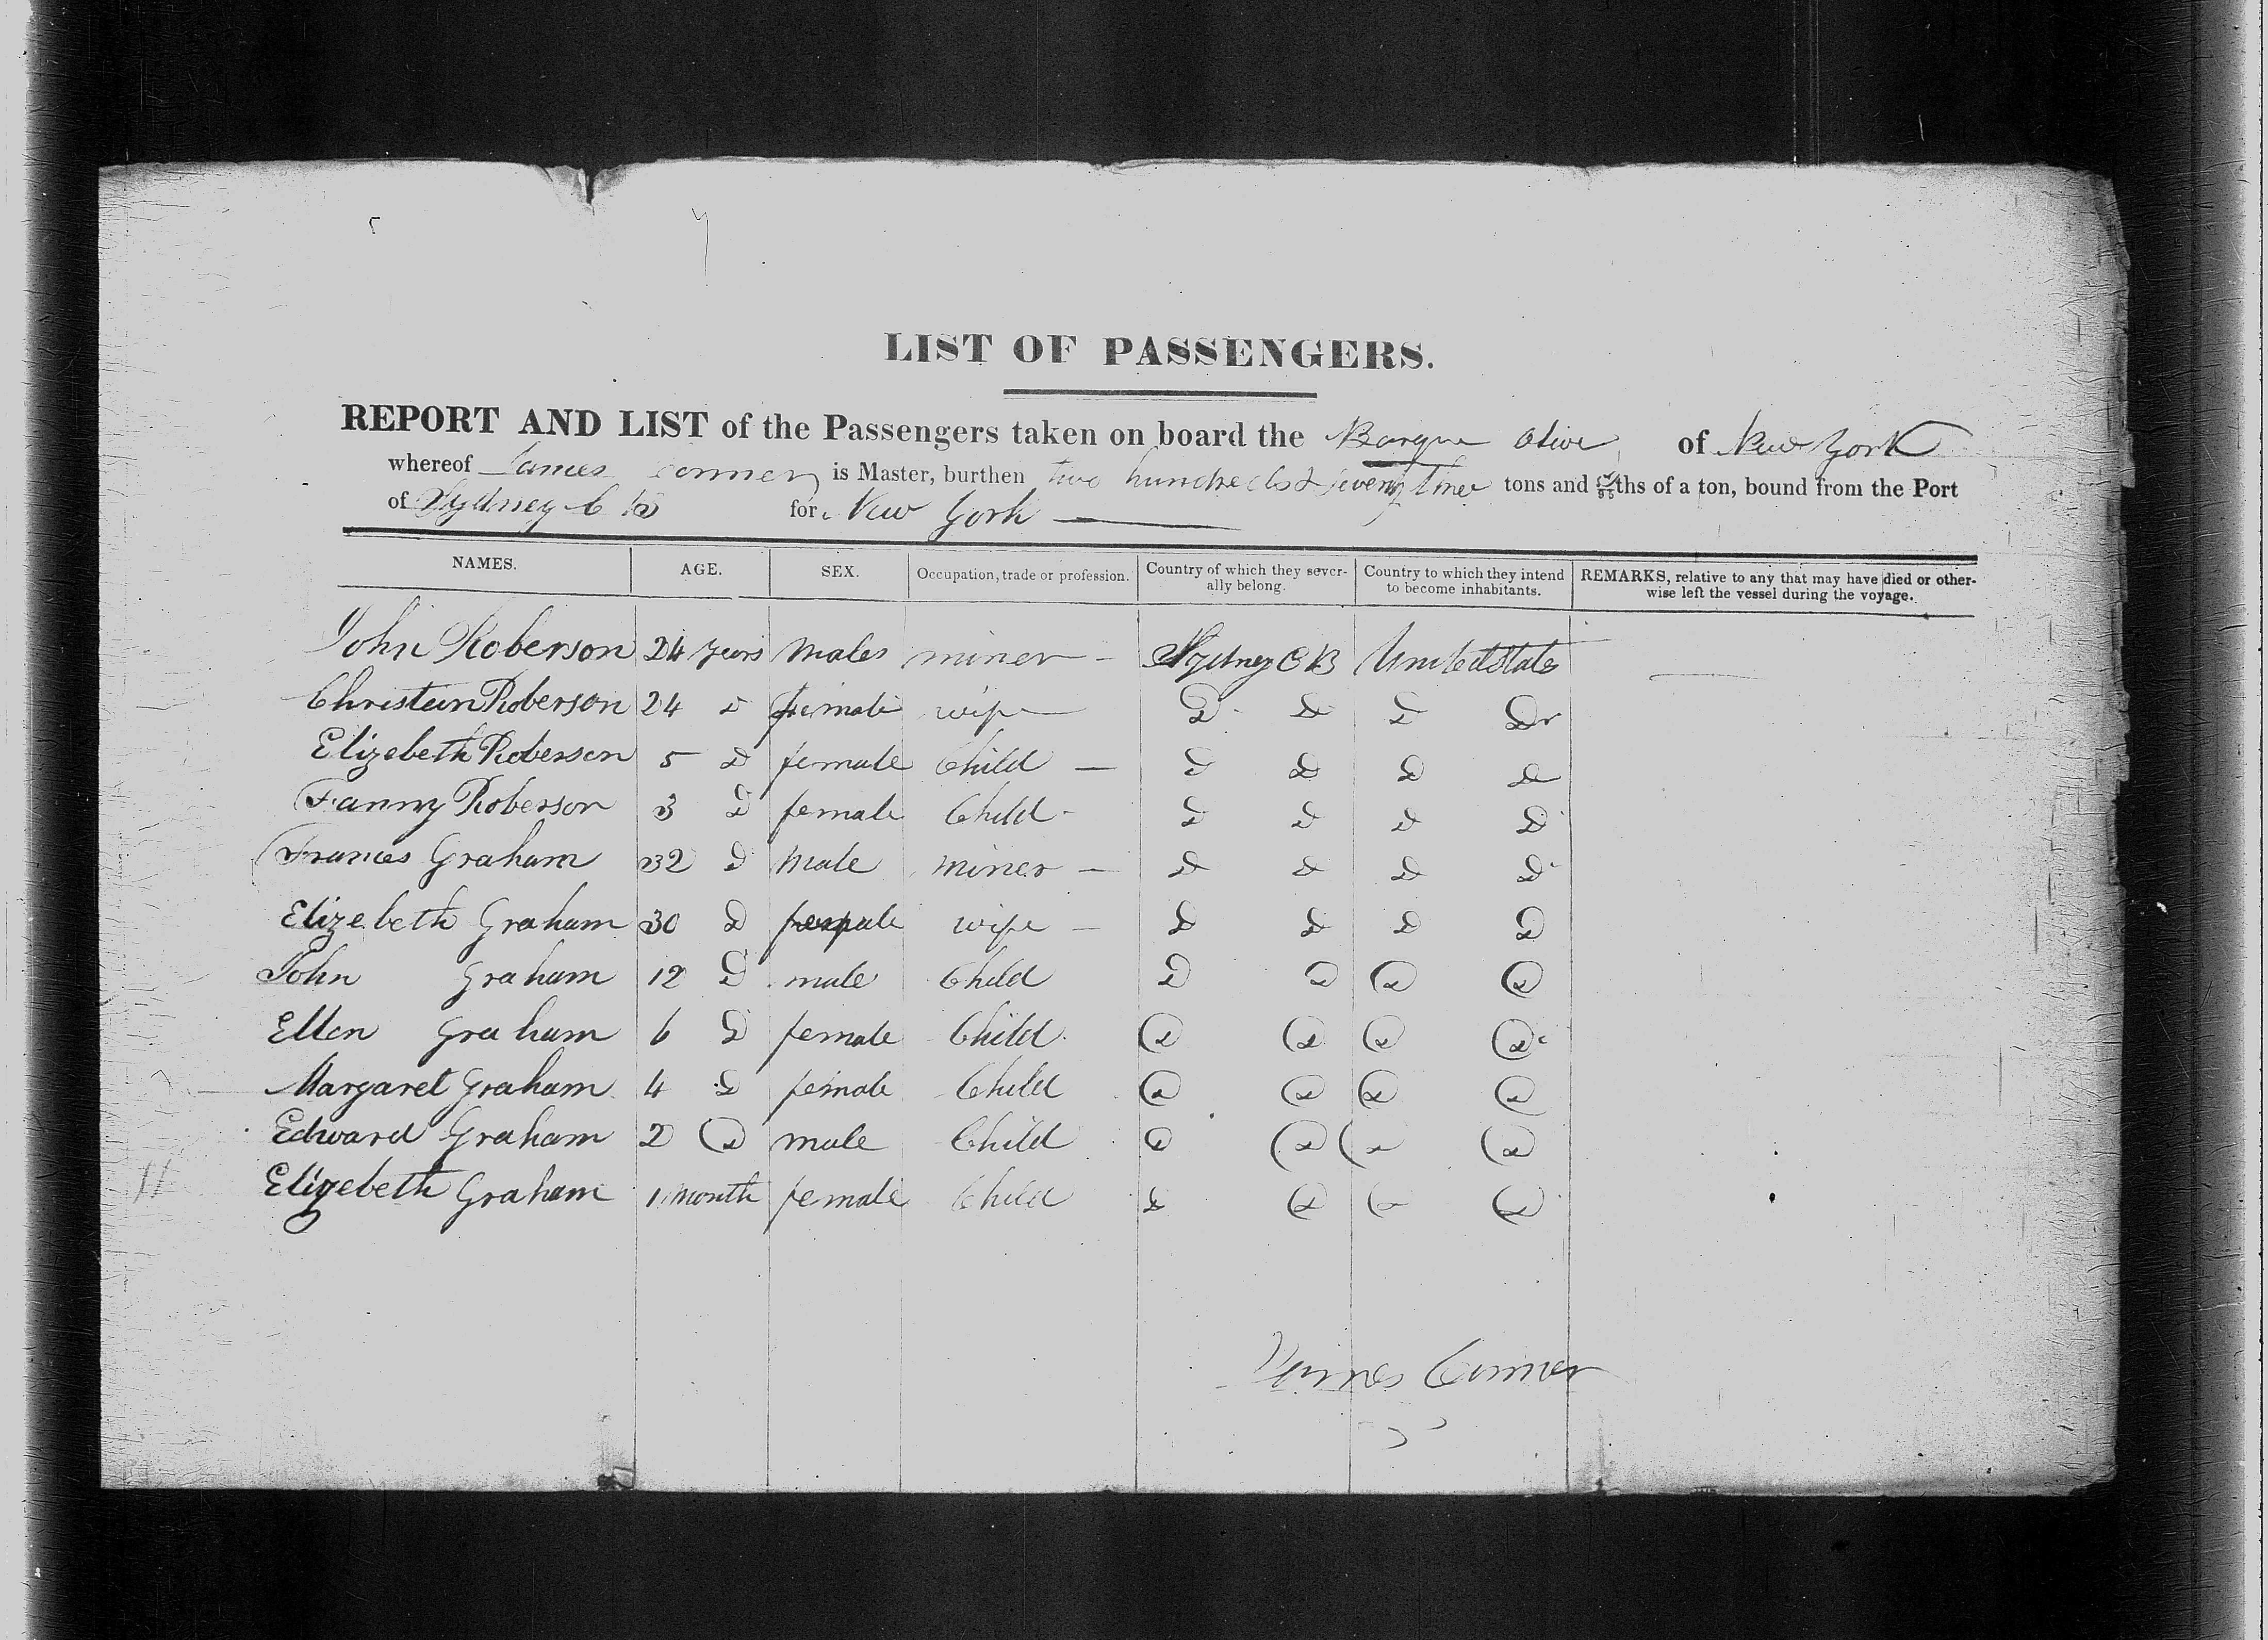 LIST OF PASSENGERS.
REPORT AND LIST of the Passengers taken on board the Barque Olive of New York
whereof James Conner is Master, burthen two hundred & seventy three tons and ths of a ton, bound from the Port
of Sydney C B for New York
NAMES. AGE. SEX. Occupation, trade or profession. Country of which they severally belong. Country to which they intend to become inhabitants. REMARKS, relative to any that may have died or otherwise left the vessel during the voyage.
John Roberson 24 years males miner - Sydney C B United States
Christein Roberson 24 D female wife D D D Do
Elizebeth Roberson 5 D female Child — D D D D
Fanny Roberson 3 D female Child - D D D D
Frances Graham 32 D male miner — D D D D
Elizebeth Graham 30 D female wife - D D D D
John Graham 12 D male Child D D D D
Ellen Graham 6 D female Child D D D D
Margaret Graham 4 D female Child D D D D
Edward Graham 2 D male Child D D D D
Elizebeth Graham 1 month female Child D D D D
11
James Conner